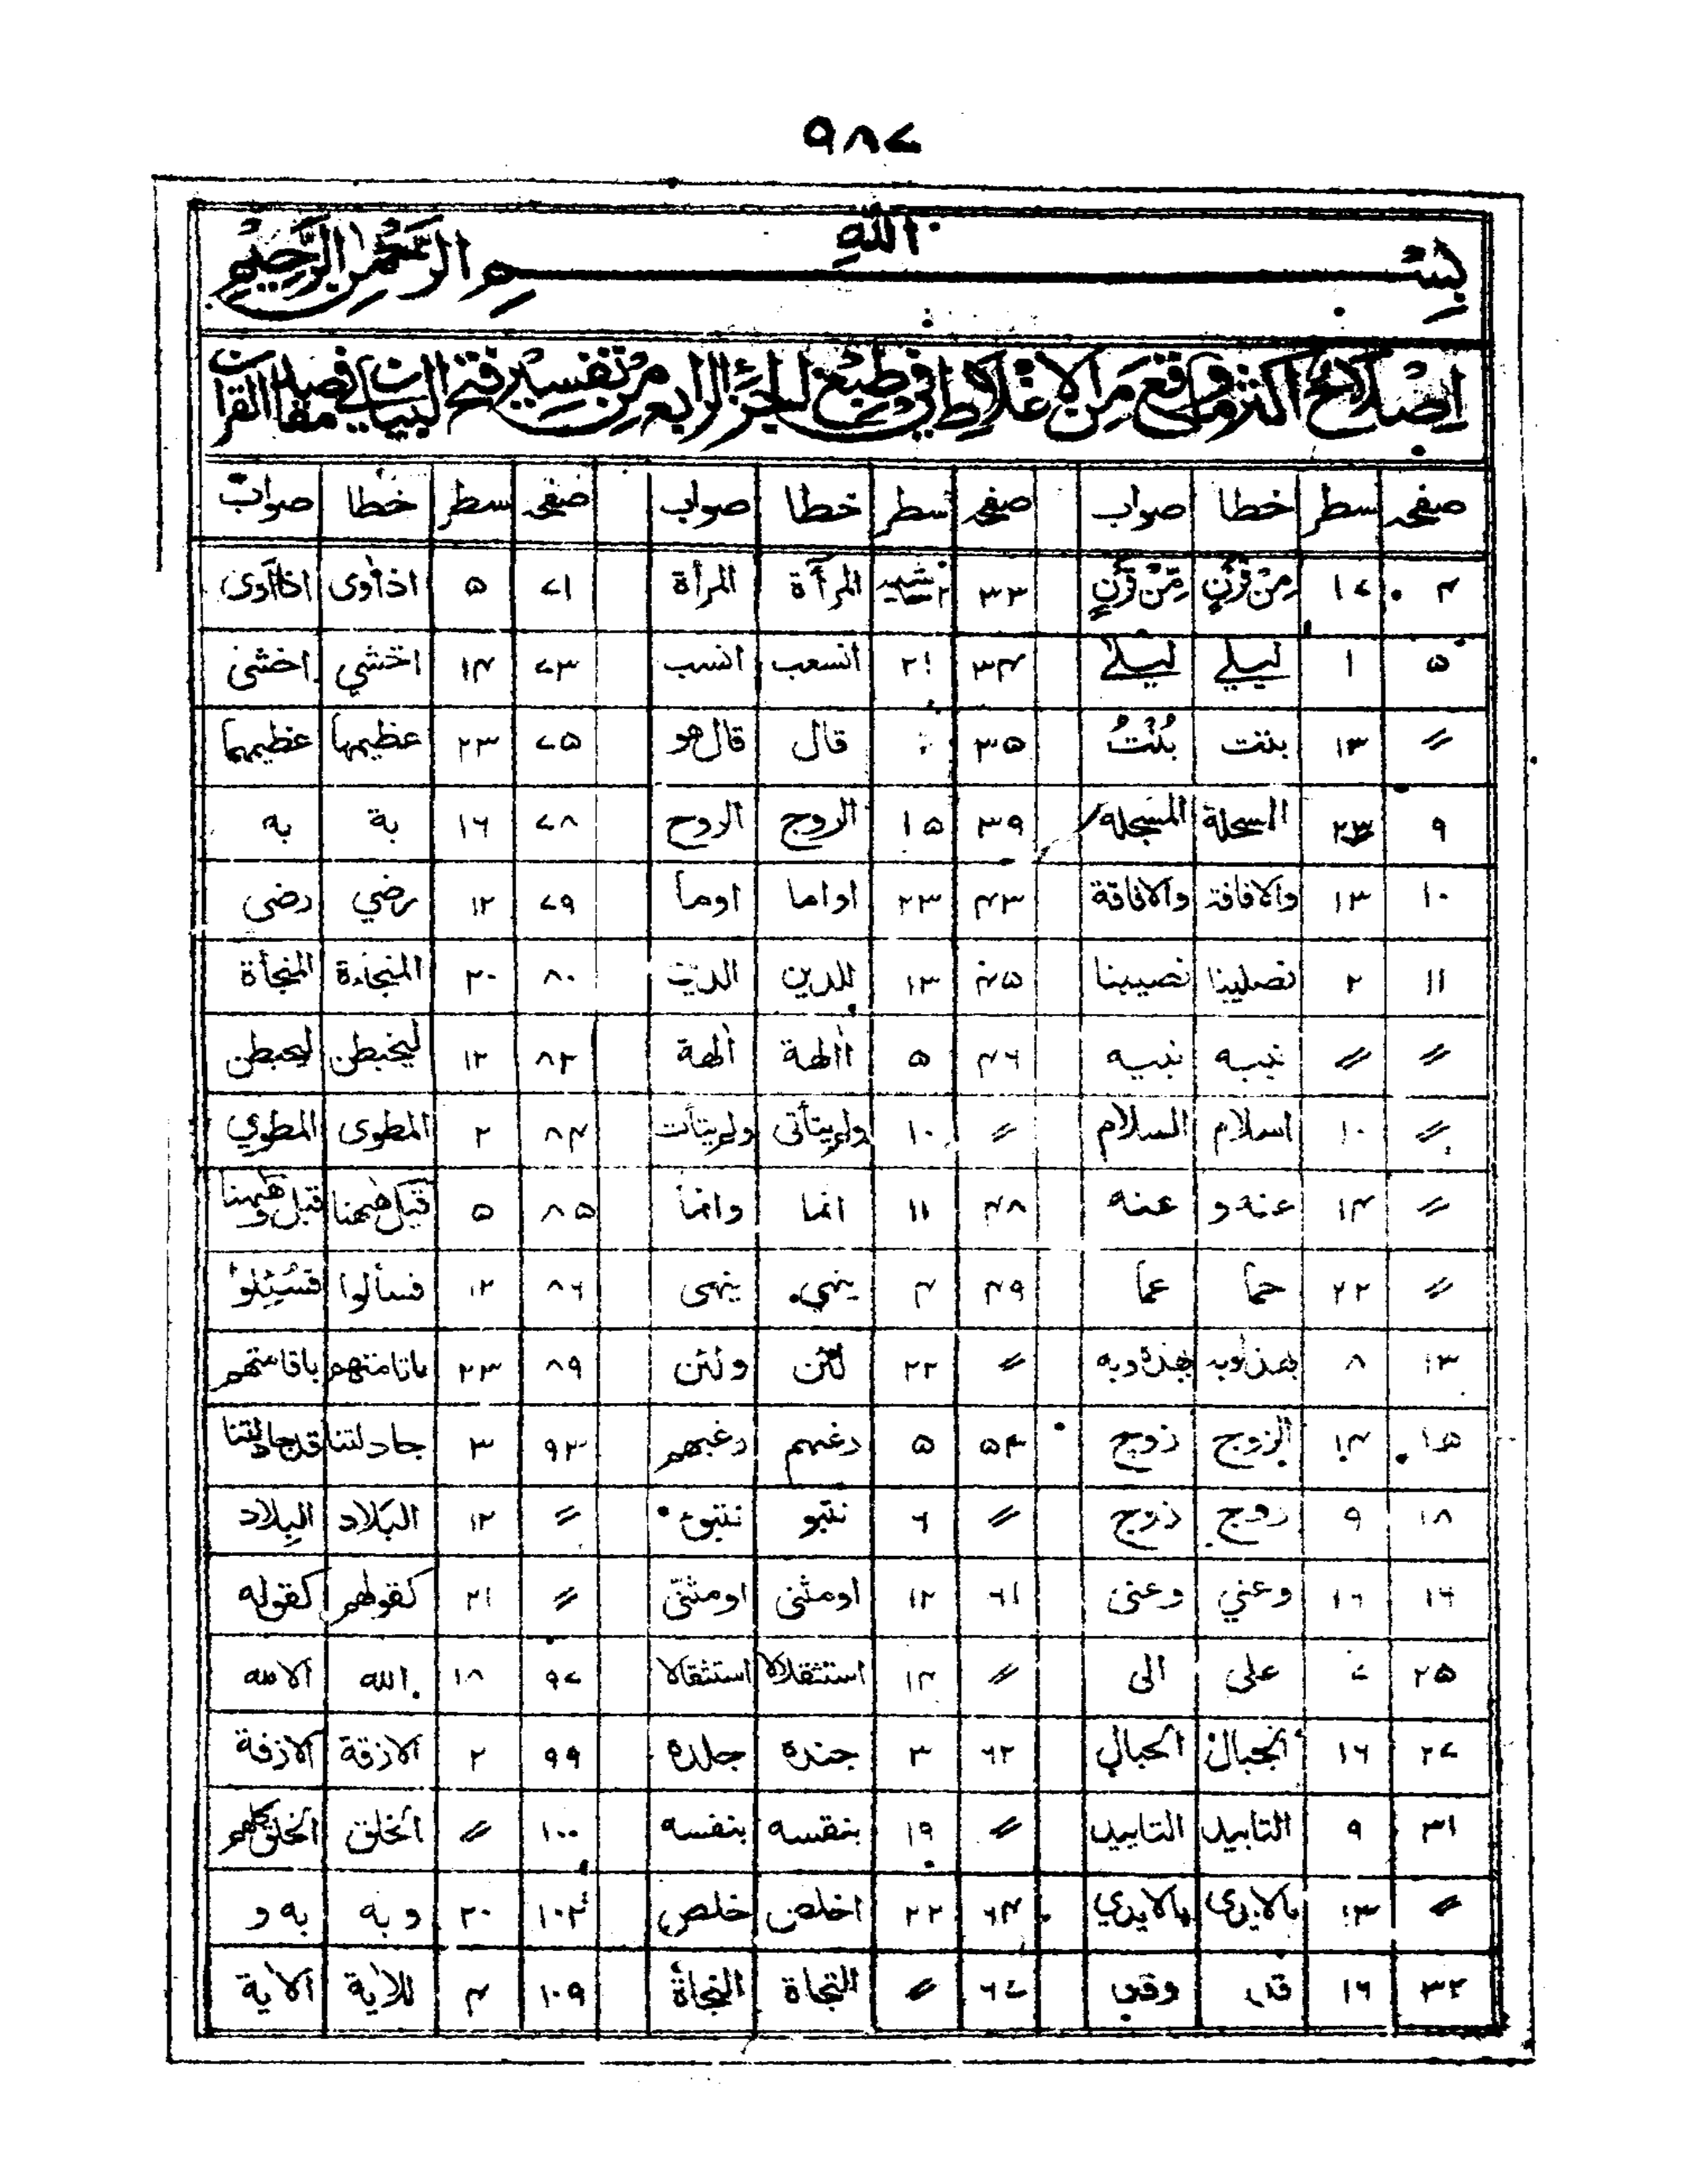 ٩٨٧
بسم الله الرحمن الرحيم
اصلاح اكثر ما وقع من الاغلاط في طبع الجزء الرابع من تفسير فتح البيان في مقاصد القرآن
صفحہ سطر خطا صواب صفحہ سطر خطا صواب صفحہ سطر خطا صواب
۴ ۱۷ مِنْ قَرْنٍ مِّنْ قَرْنٍ ۳۳ المرآة المرأة ۷۱ ۵ اذأوى اذاآوى
۵ ۱ ليلي ليلے ۳۴ ۲۱ انسعب انسب ۷۳ ۱۴ اخشي اخشى
〃 ۱۳ بنت بُنْتُ ۳۵ قال قال هو ۷۵ ۲۳ عظيمها عظيمهما
۹ ۲۳ السجلة المسجله ۳۹ ۱۵ الروج الروح ۷۸ ۱۶ بة به
۱۰ ۱۳ والافافة والافاقة ۴۳ ۲۳ اواما اوما ۷۹ ۱۲ رضي رضى
۱۱ ۲ نصلينا نصيبنا ۴۵ ۱۳ للدين الدين ۸۰ ۲۰ المنجاءة المنجأة
〃 〃 نبيه ۴۶ ۵ األهة ألهة ۸۳ ۱۲ ليخبطن ليحبطن
〃 ۱۰ اسلام السلام 〃 ۱۰ ولم يتأتى ولم يتأت ۸۴ ۲ المطوى المطوي
〃 ۱۴ عنه و عنه ۴۸ ۱۱ انما وانما ۸۵ ۵ قبل ههنا قبل وههنا
〃 ۲۲ حما عما ۴۹ ۴ ينهي ينهى ۸۶ ۱۲ فسألوا فسُئِلوا
۱۳ ۸ بهذه وبه 〃 ۲۲ لئن ولئن ۸۹ ۲۳ باقامتهم
۱۵ ۱۴ الزوج زوج ۵۴ ۵ رغبهم ۹۳ ۳ جادلتنا قد جادلتنا
۱۸ ۹ روج زوج 〃 ۶ نتبو نتبوء 〃 ۱۲ البَلاد البِلاد
۱۶ ۱۶ وعني وعنى ۶۱ ۱۲ اومثنى اومثنّى 〃 ۲۱ كقولهم كقوله
۲۵ ۷ على الى 〃 ۱۴ استثقلالا استثقالا ۹۷ ۱۸ الله الا الله
۲۷ ۱۶ الجبال الحبالي ۶۲ ۳ جندة جلدة ۹۹ ۲ الازقة الازفة
۳۱ ۹ التابيد التاييد 〃 ۱۹ بنقسه بنفسه ۱۰۰ 〃 الخلق الخلق كلهم
〃 ۱۳ بالايدى بالايدي ۶۴ ۲۲ اخلص خلص ۱۰۴ ۲۰ و به به و
۳۲ ۱۶ قد وقد ۶۷ 〃 النجاة النجأة ۱۰۹ ۴ للاية الاية